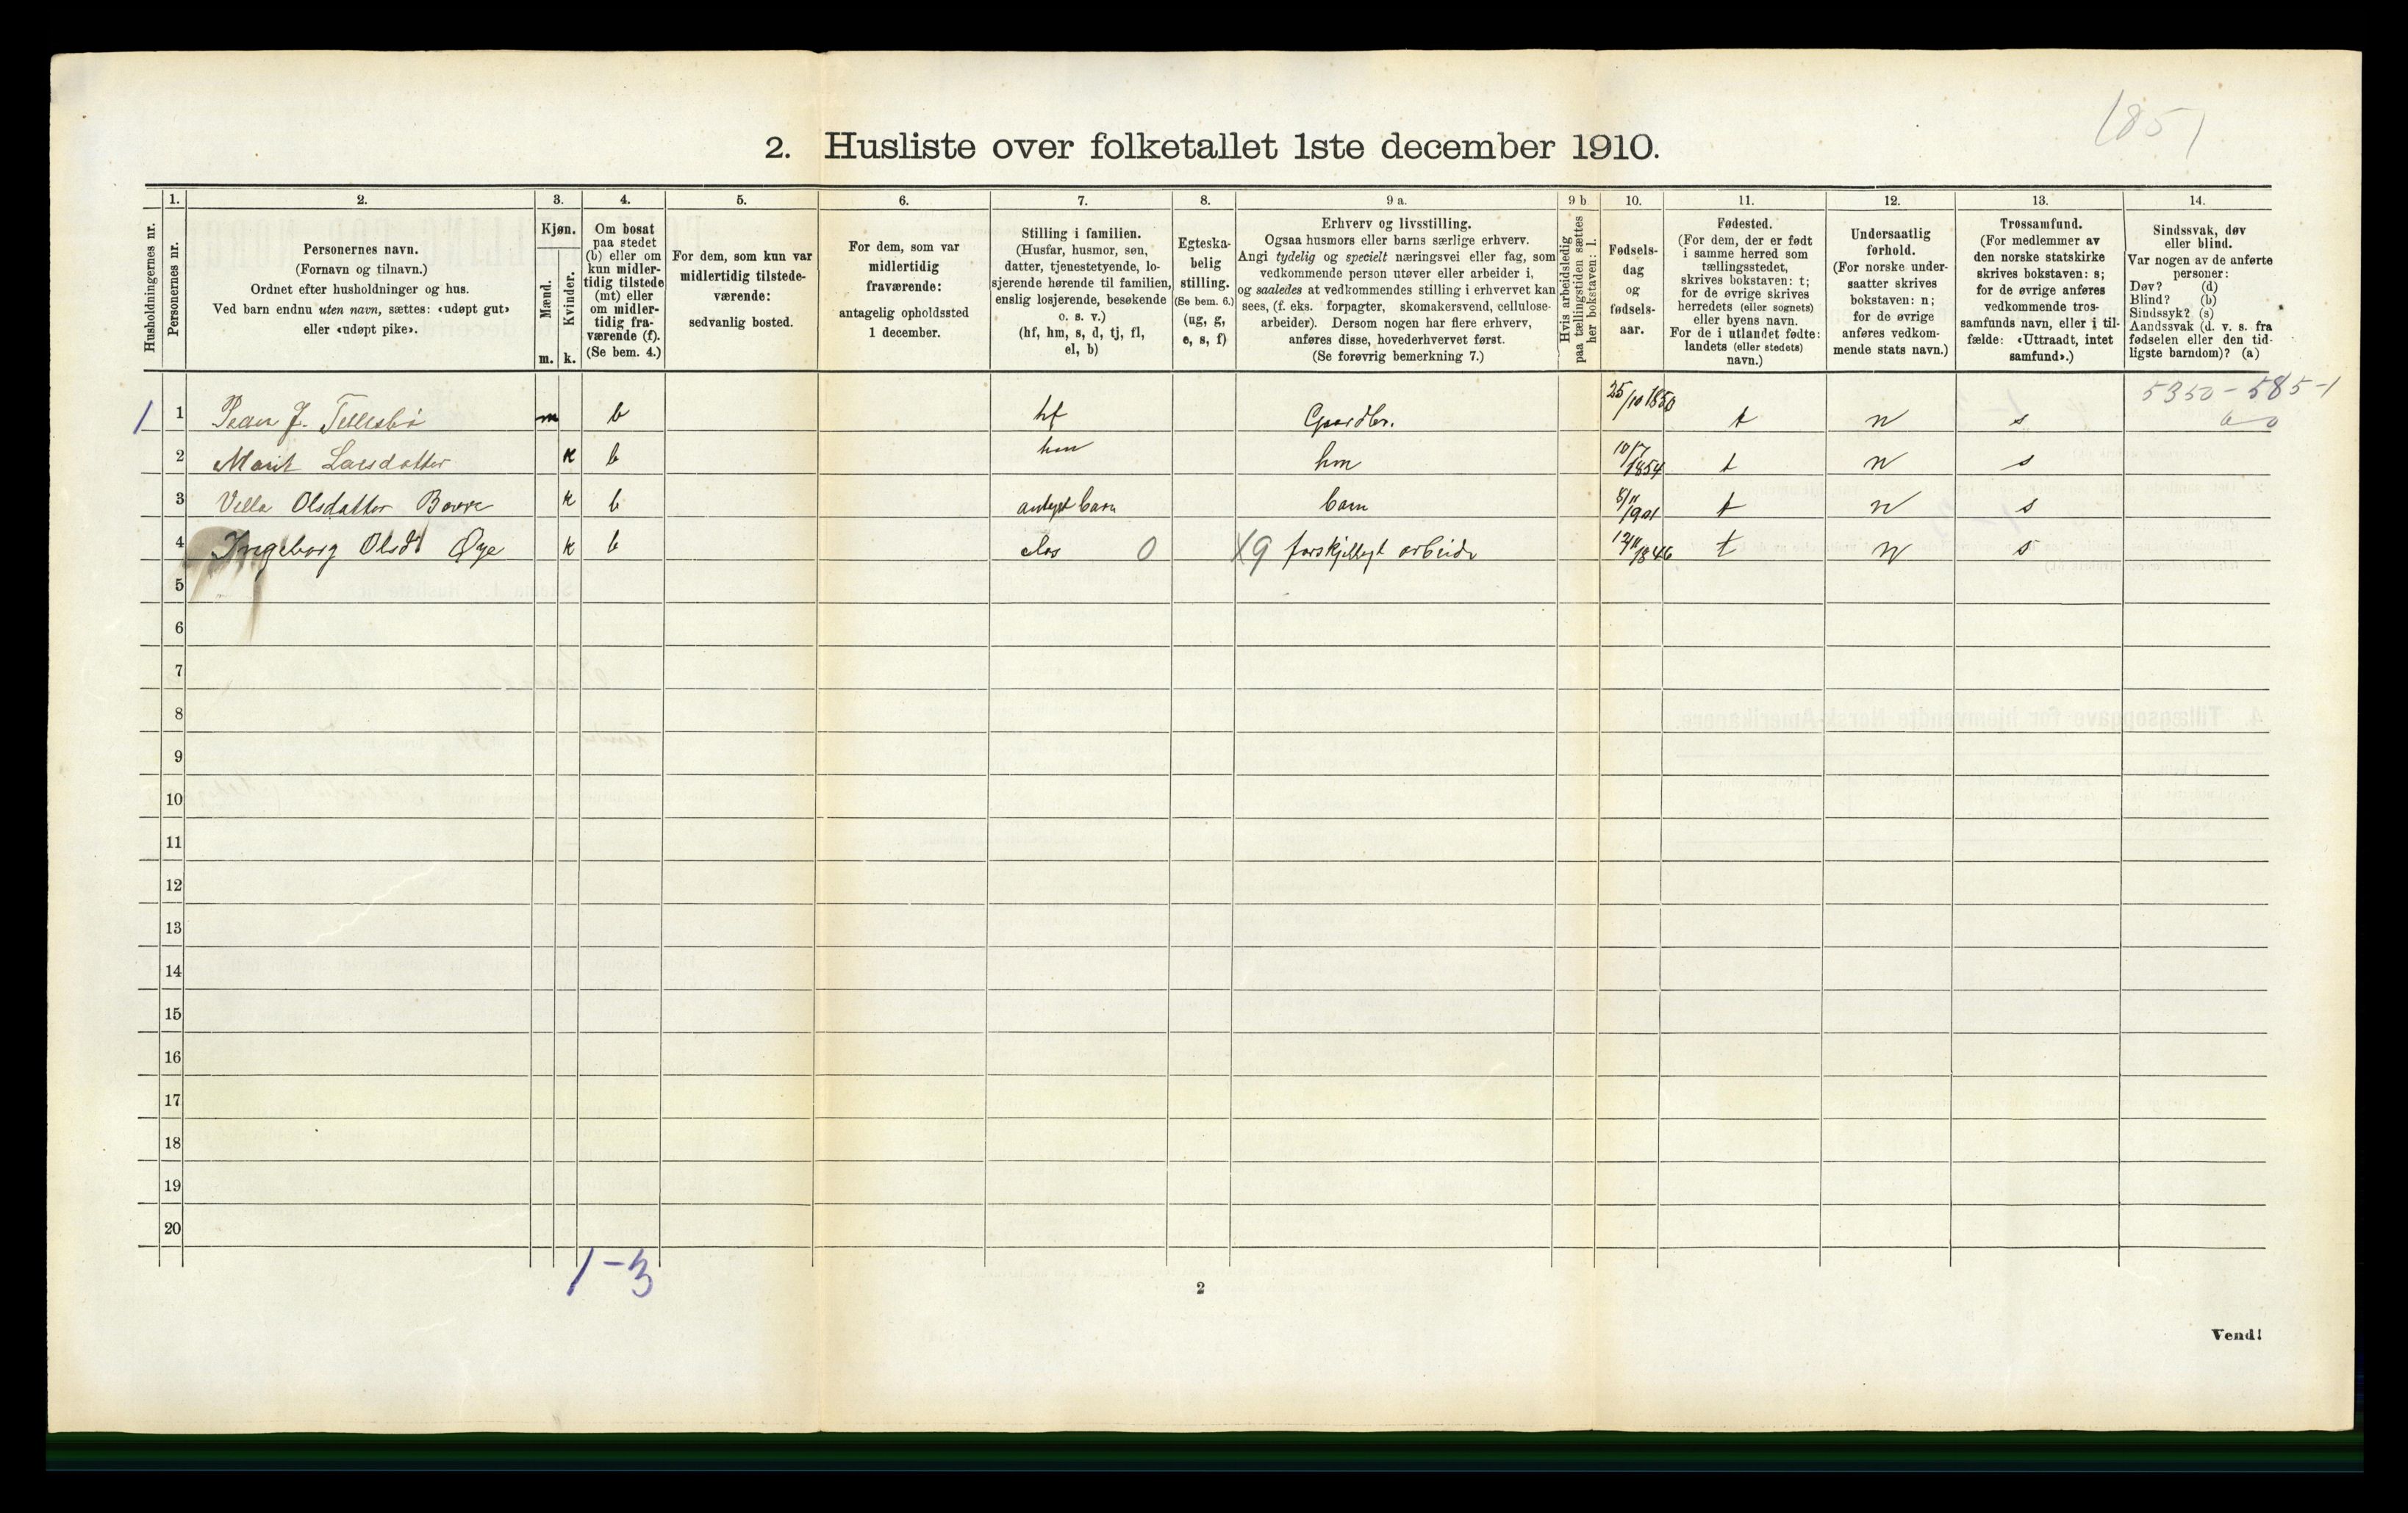 1851
2. Husliste over folketallet 1ste december 1910.
Husholdningernes nr.
1.
Personernes nr.
2.
Personernes navn.
(Fornavn og tilnavn.)
Ordnet efter husholdninger og hus.
Ved barn endnu uten navn, sættes: «udøpt gut»
eller «udøpt pike».
3.
Kjøn.
Mænd.
Kvinder.
m. k.
4.
Om bosat
paa stedet
(b) eller om
kun midler-
tidig tilstede
(mt) eller
om midler-
tidig fra-
værende (f).
(Se bem. 4.)
5.
For dem, som kun var
midlertidig tilstede-
værende:
sedvanlig bosted.
6.
For dem, som var
midlertidig
fraværende:
antagelig opholdssted
1 december.
7.
Stilling i familien.
(Husfar, husmor, søn,
datter, tjenestetyende, lo-
sjerende hørende til familien,
enslig losjerende, besøkende
o. s. v.)
(hf, hm, s, d, tj, fl,
el, b)
8.
Egteska-
belig
stilling.
(Se bem. 6.)
(ug, g,
e, s, f)
9 a.
Erhverv og livsstilling.
Ogsaa husmors eller barns særlige erhverv.
Angi tydelig og specielt næringsvei eller fag, som
vedkommende person utøver eller arbeider i,
og saaledes at vedkommendes stilling i erhvervet kan
sees, (f. eks. forpagter, skomakersvend, cellulose-
arbeider). Dersom nogen har flere erhverv,
anføres disse, hovederhvervet først.
(Se forøvrig bemerkning 7.)
9 b
Hvis arbeidsledig
paa tællingstiden sættes
her bokstaven: l.
10.
Fødsels-
dag
og
fødsels-
aar.
11.
Fødested.
(For dem, der er født
i samme herred som
tællingsstedet,
skrives bokstaven: t;
for de øvrige skrives
herredets (eller sognets)
eller byens navn.
For de i utlandet fødte:
landets (eller stedets)
navn.)
12.
Undersaatlig
forhold.
(For norske under-
saatter skrives
bokstaven: n;
for de øvrige
anføres vedkom-
mende stats navn.)
13.
Trossamfund.
(For medlemmer av
den norske statskirke
skrives bokstaven: s;
for de øvrige anføres
vedkommende tros-
samfunds navn, eller i til-
fælde: «Uttraadt, intet
samfund».)
14.
Sindssvak, døv
eller blind.
Var nogen av de anførte
personer:
Døv? (d)
Blind? (b)
Sindssyk? (s)
Aandssvak (d. v. s. fra
fødselen eller den tid-
ligste barndom)? (a)
5350-585-1
0-0
1 1 J. m b hf Gaardbr. 25/10 1850 t n s
2 Marit Larsdatter k b hm hm 10/7 1854 t n s
3 Olsdatter k b barn barn 8/11 1901 t n s
4 Ingeborg Olsdt Øye k b los 0 X9 forskjelligt arbeide 12/11 1846 t n s
5
6
7
8
9
10
11
12
13
14
15
16
17
18
19
20
1-3
2
Vend!